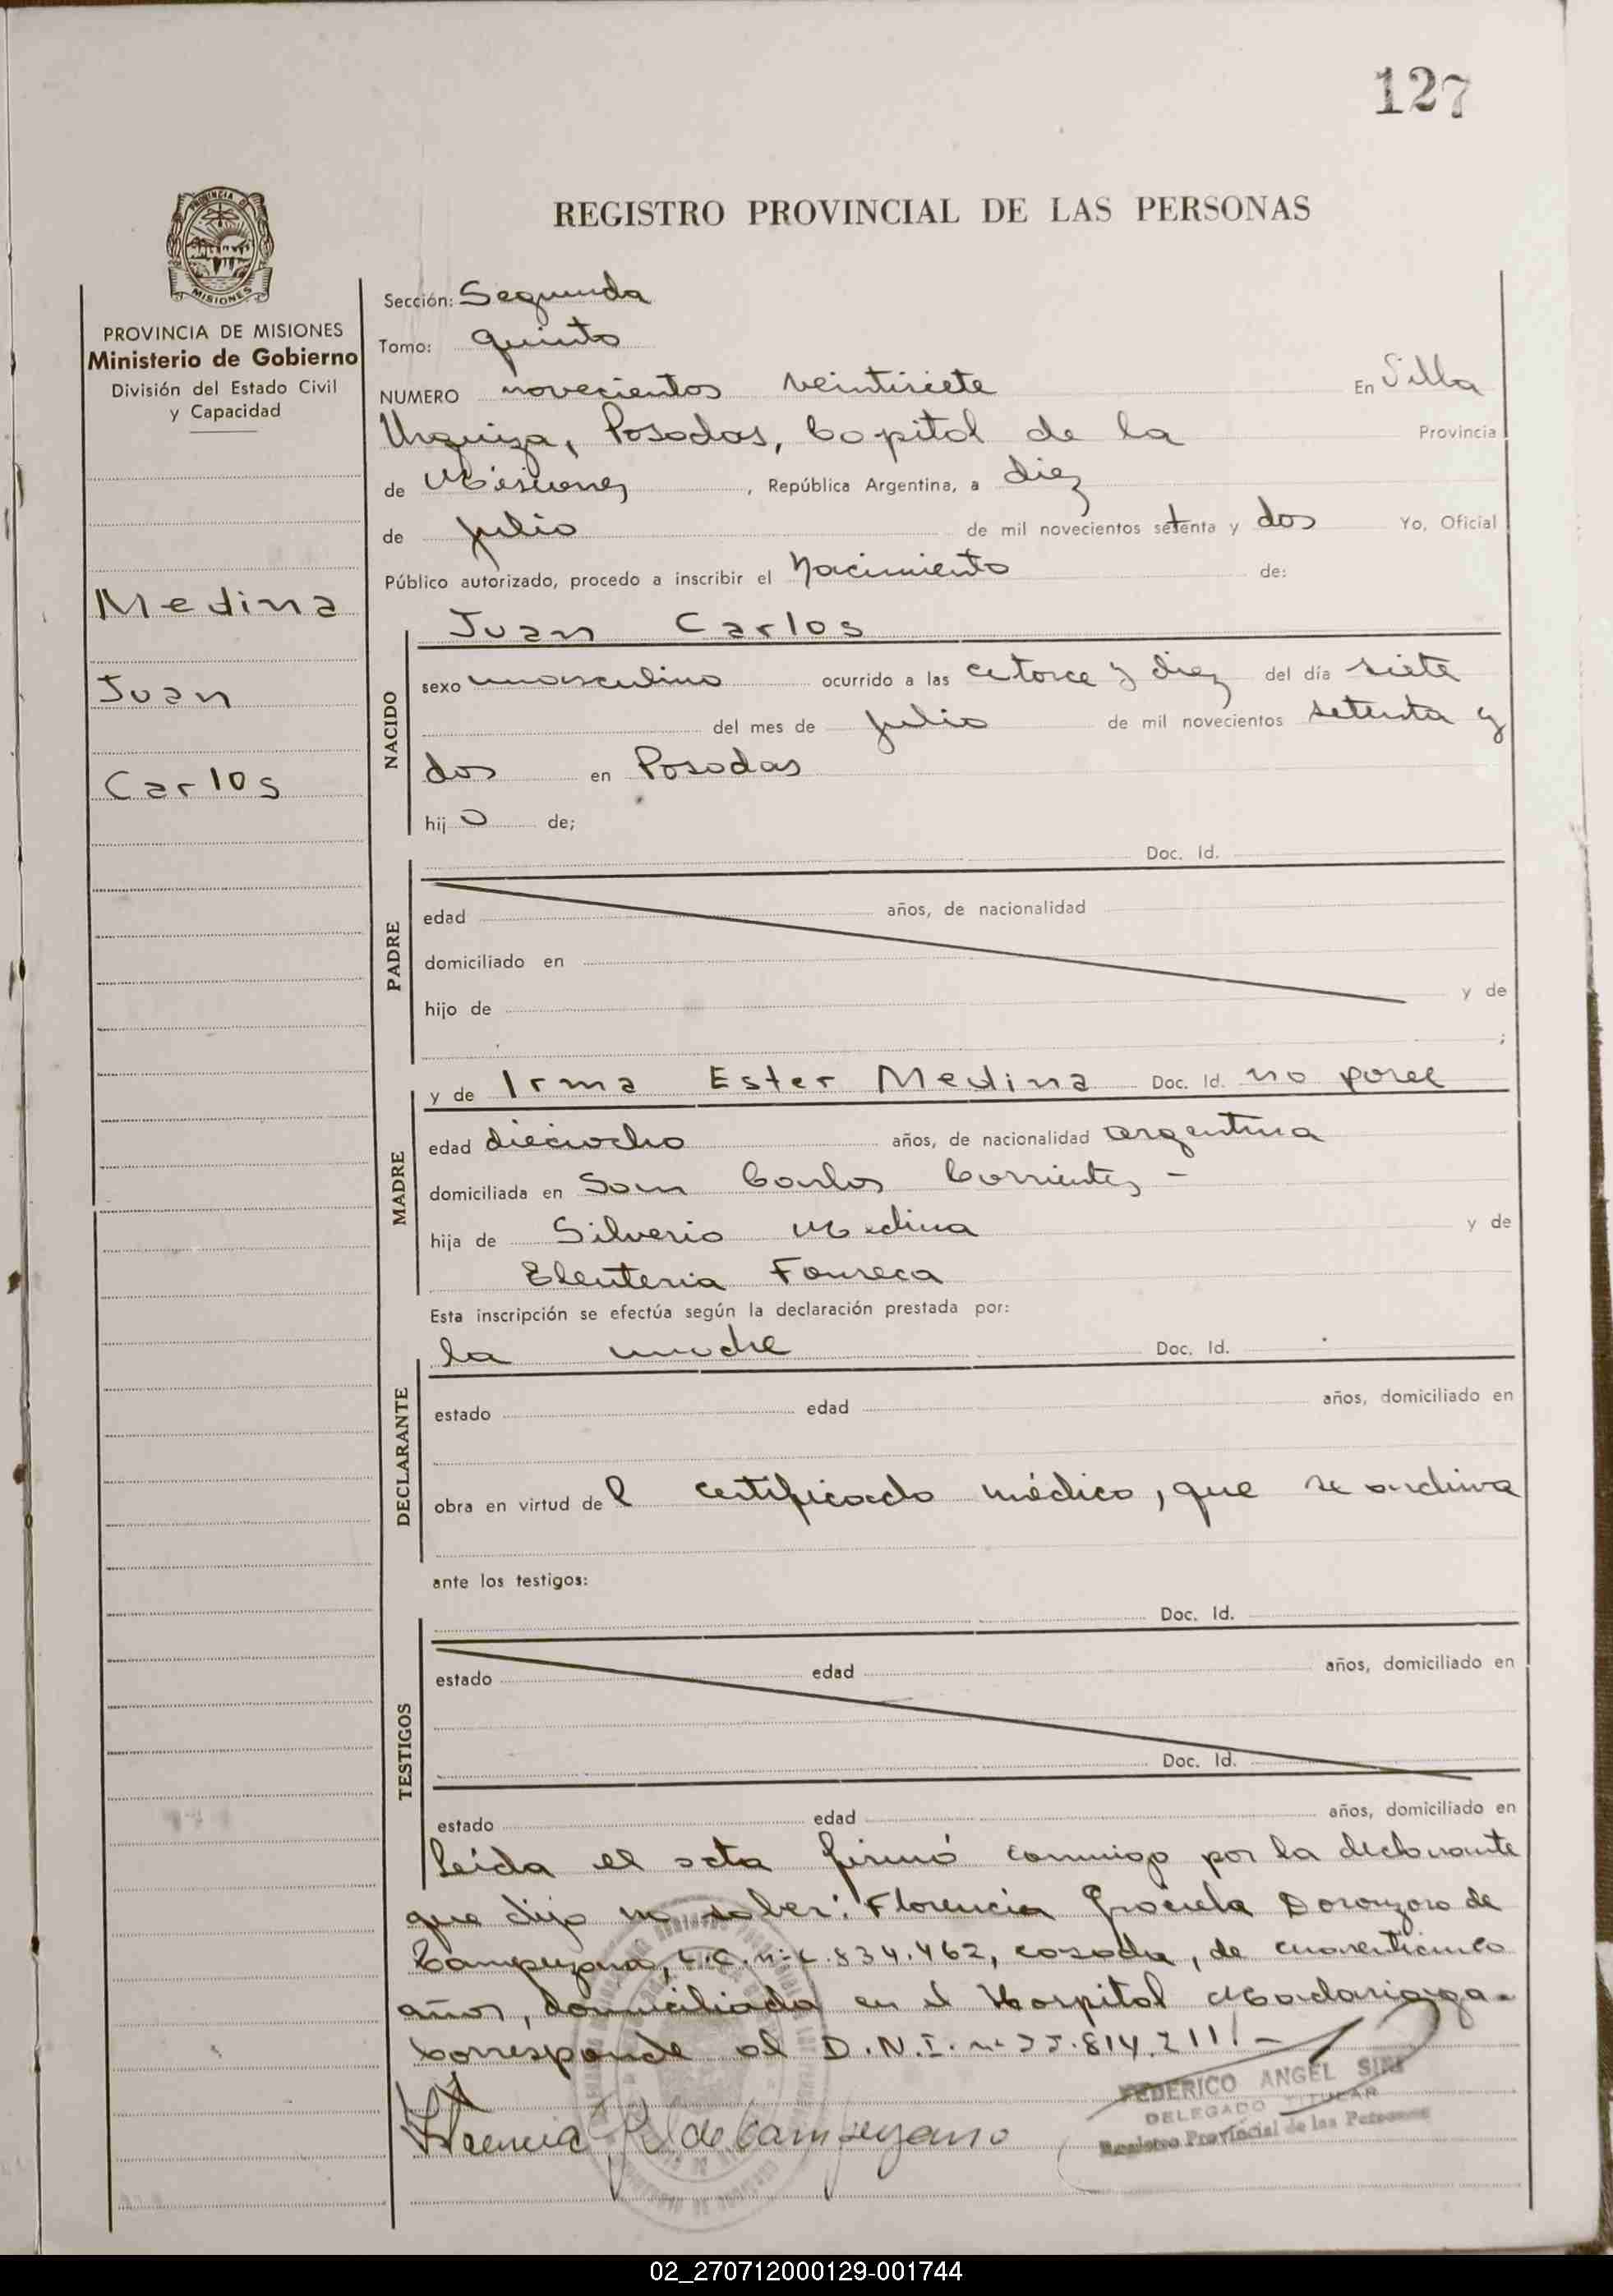 127
REGISTRO PROVINCIAL DE LAS PERSONAS
PROVINCIA DE MISIONES
MISIONES
PROVINCIA DE MISIONES
Ministerio de Gobierno
División del Estado Civil
y Capacidad
Medina
Juan
Carlos
Sección: Segunda
Tomo: quinto
NUMERO novecientos veintisiete En Villa
Urquiza, Posadas, Capital de la Provincia
de Misiones, República Argentina, a diez
de julio de mil novecientos setenta y dos Yo, Oficial
Público autorizado, procedo a inscribir el Nacimiento de:
NACIDO
Juan Carlos
sexo masculino ocurrido a las catorce y diez del día siete
del mes de julio de mil novecientos setenta y
dos en Posadas
hijo de;
PADRE
Doc. Id.
edad años, de nacionalidad
domiciliado en
hijo de y de
;
MADRE
y de Irma Ester Medina Doc. Id. no posee
edad dieciocho años, de nacionalidad argentina
domiciliada en San Carlos Corrientes -
hija de Silverio Medina y de
Eleuteria Fonseca
Esta inscripción se efectúa según la declaración prestada por:
DECLARANTE
la madre Doc. Id.
estado edad años, domiciliado en
obra en virtud del certificado médico, que se archiva
ante los testigos:
TESTIGOS
Doc. Id.
estado edad años, domiciliado en
Doc. Id.
estado edad años, domiciliado en
Leída el acta firmó conmigo por la declarante
que dijo no saber: Florencia Graciela de
Campuzano, L.C. nº 834.462, casada, de cuarenticinco
años, domiciliada en el Hospital Madariaga.
Corresponde al D.N.I. nº 814.211! -
Florencia G. D. de Campuzano
FEDERICO ANGEL SIRI
DELEGADO TITULAR
Registro Provincial de las Personas
02_270712000129-001744